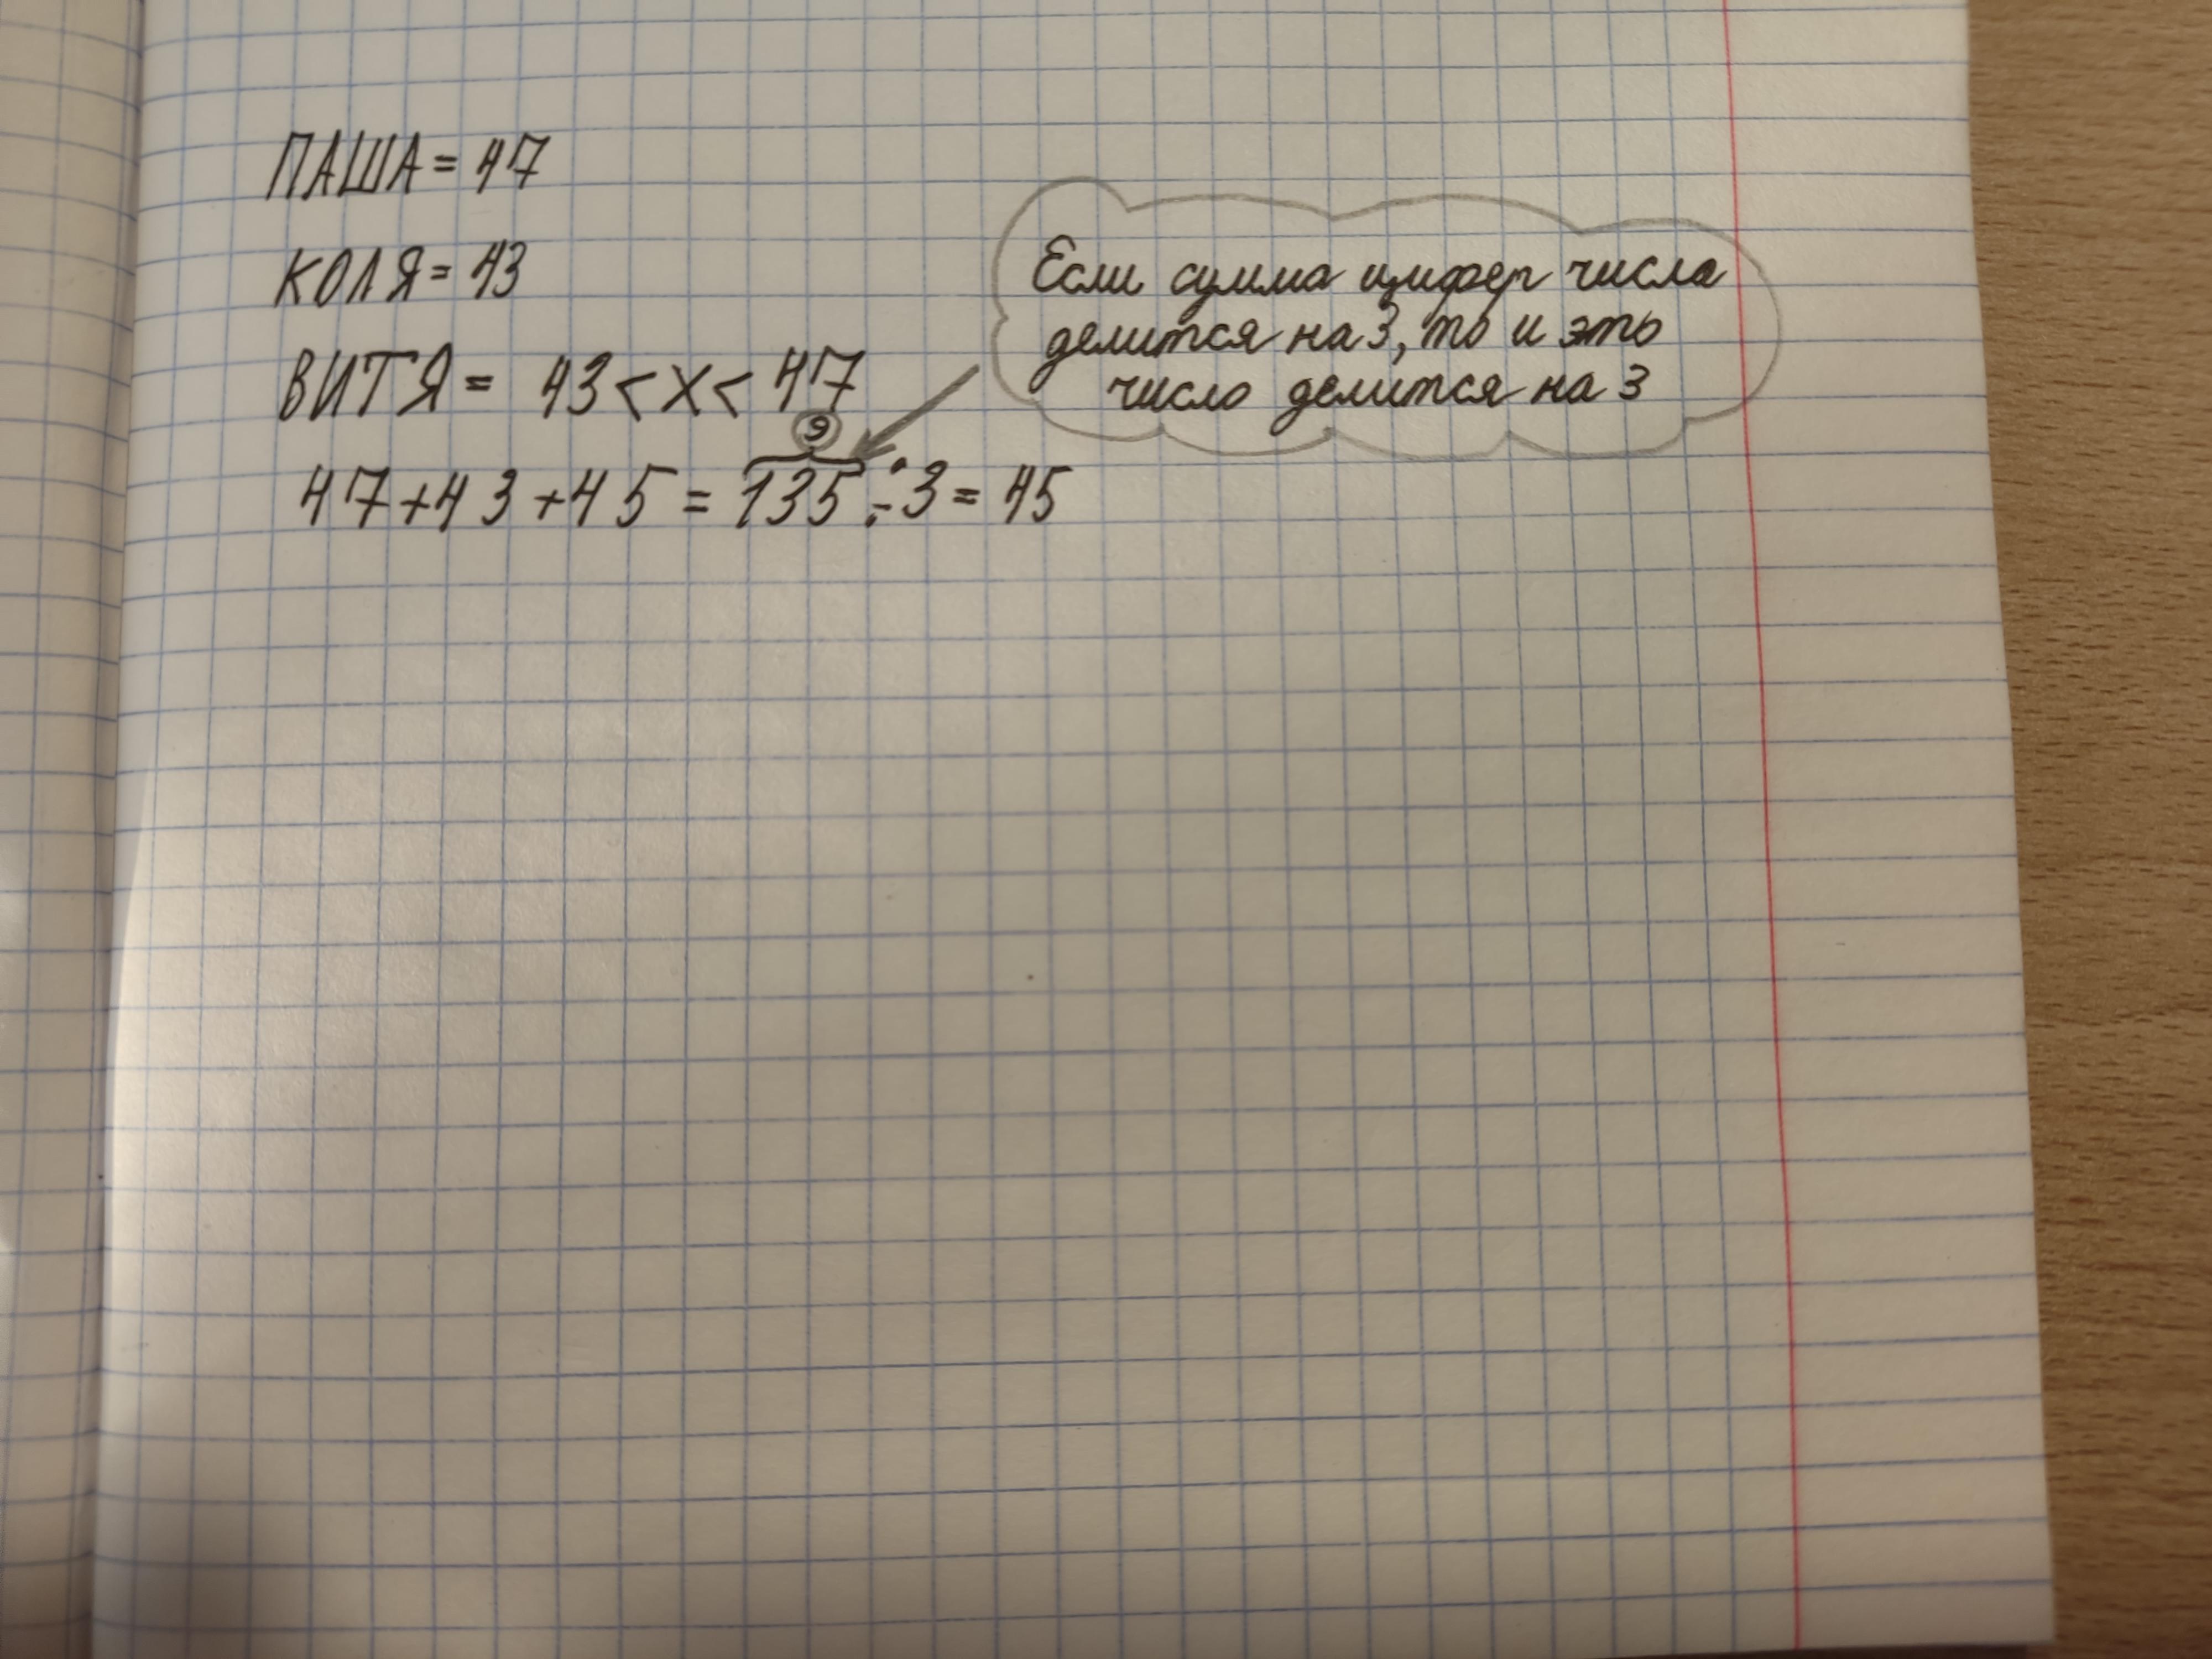 ПАША = 47
КОЛЯ = 43
ВИТЯ = 43 < X < 47
9
47 + 43 + 45 = 135 ÷ 3 = 45
Если сумма цифер числа
делится на 3, то и это
число делится на 3